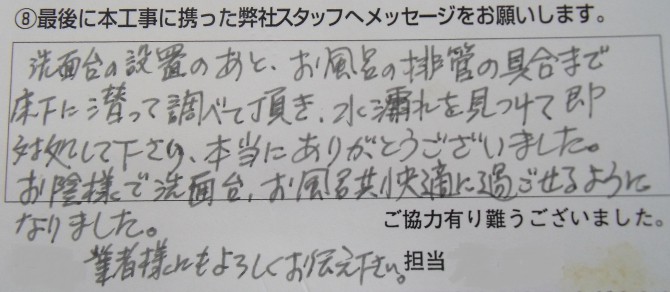 ⑧最後に本工事に携った弊社スタッフへメッセージをお願いします。
洗面台の設置のあと、お風呂の排管の具合まで
床下に潜って調べて頂き、水漏れを見つけて即
対処して下さり、本当にありがとうございました。
お陰様で洗面台、お風呂共快適に過ごせるように
なりました。
ご協力有り難うございました。
業者様にもよろしくお伝え下さい。担当